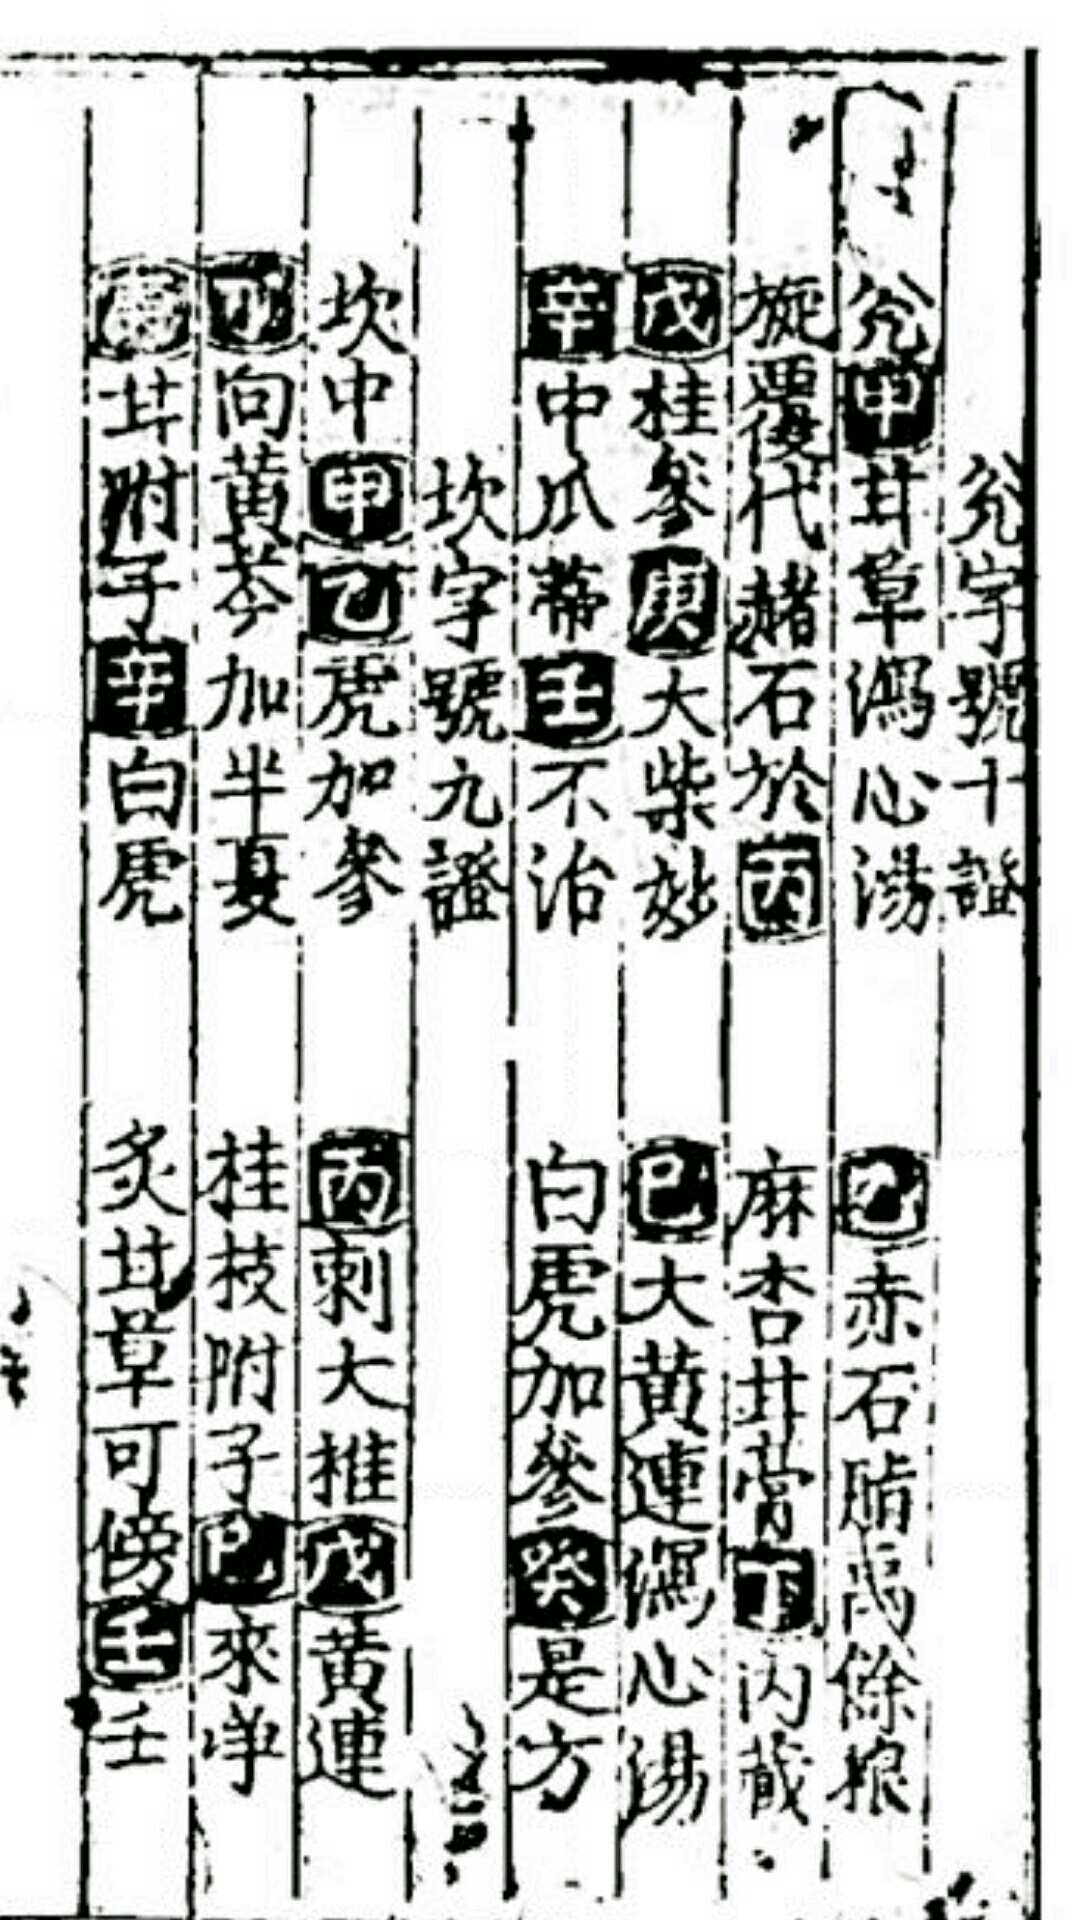 兊字號十證
兊甲甘草瀉心湯 乙赤石脂禹餘粮
旋覆代赭石於丙 麻杏甘膏丁內藏
戊桂參庚大柴妙 己大黃連瀉心湯
辛中瓜蒂壬不治 白虎加參癸是方
坎字號九證
坎中甲乙虎加參 丙刺大椎戊黃連
丁向黃芩加半夏 桂枝附子己來
庚甘附子辛白虎 炙甘草可傍壬壬